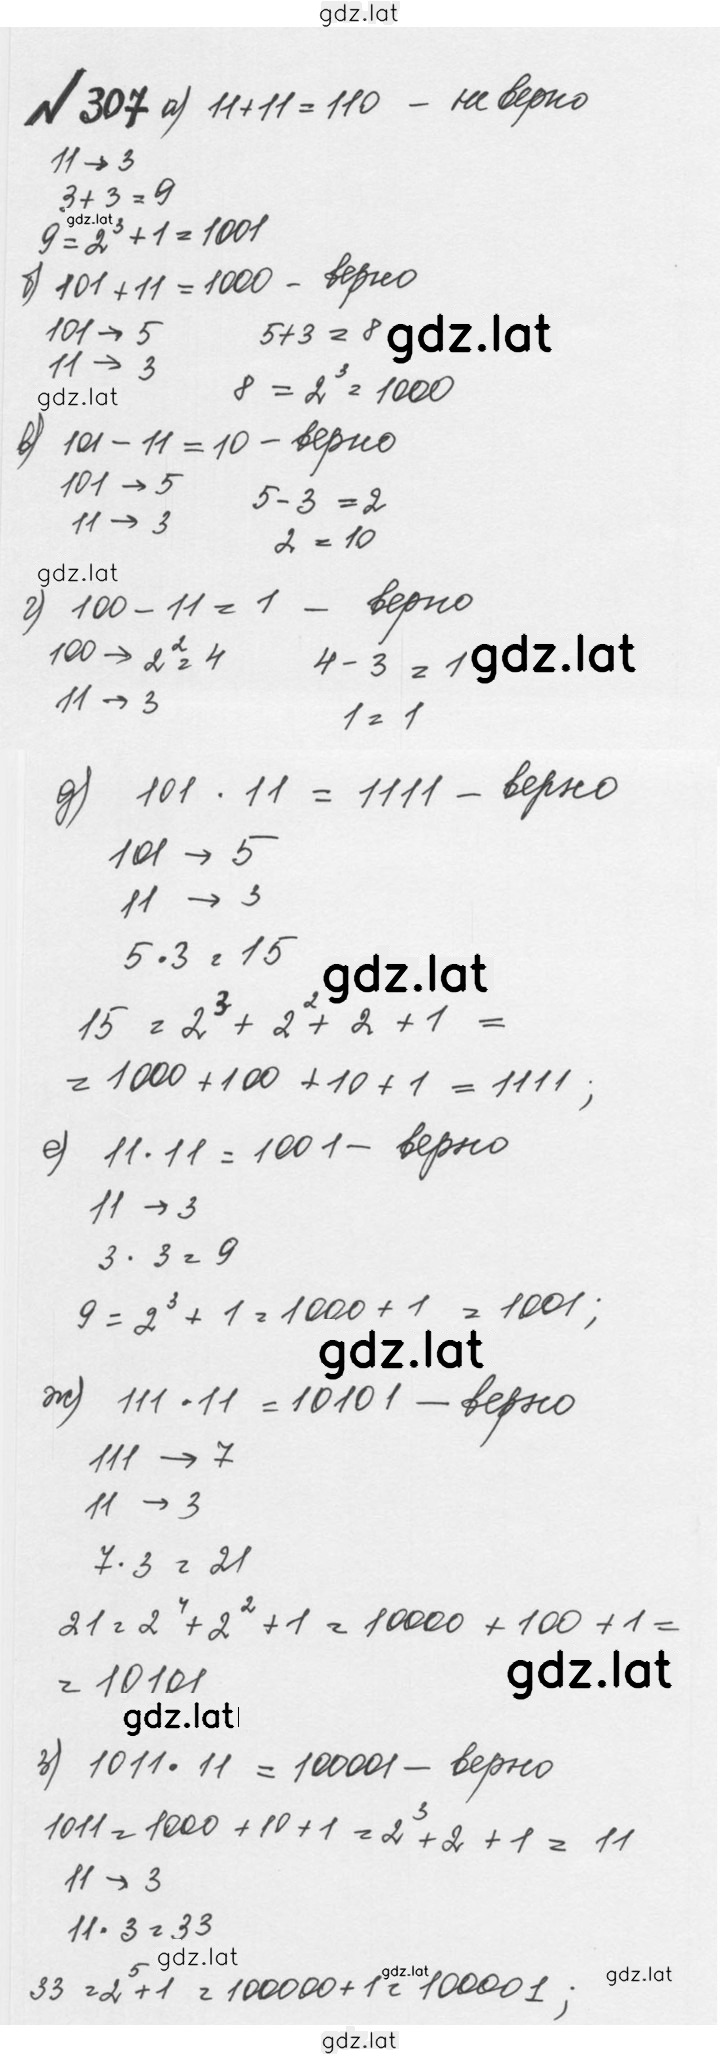 gdz.lat
№307 а) 11+11=110 – не верно
11→3
3+3=9
gdz.lat
9=2³+1=1001
б) 101+11=1000 – верно
101→5 5+3=8 gdz.lat
11→3
gdz.lat 8=2³=1000
в) 101–11=10 – верно
101→5 5–3=2
11→3 2=10
gdz.lat
г) 100–11=1 – верно
100→2²=4 4–3=1 gdz.lat
11→3 1=1
д) 101·11=1111 – верно
101→5
11→3
5·3=15
gdz.lat
15=2³+2²+2+1=
=1000+100+10+1=1111;
е) 11·11=1001 – верно
11→3
3·3=9
9=2³+1=1000+1=1001;
gdz.lat
ж) 111·11=10101 – верно
111→7
11→3
7·3=21
21=2⁴+2²+1=10000+100+1=
=10101 gdz.lat
gdz.lat
з) 1011·11=100001 – верно
1011=1000+10+1=2³+2+1=11
11→3
11·3=33
gdz.lat gdz.lat gdz.lat
33=2⁵+1=100000+1=100001;
gdz.lat